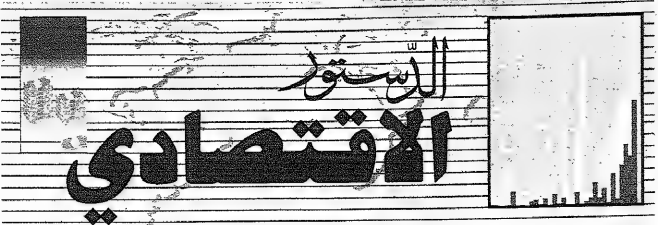 الدّستور
الاقتصادي